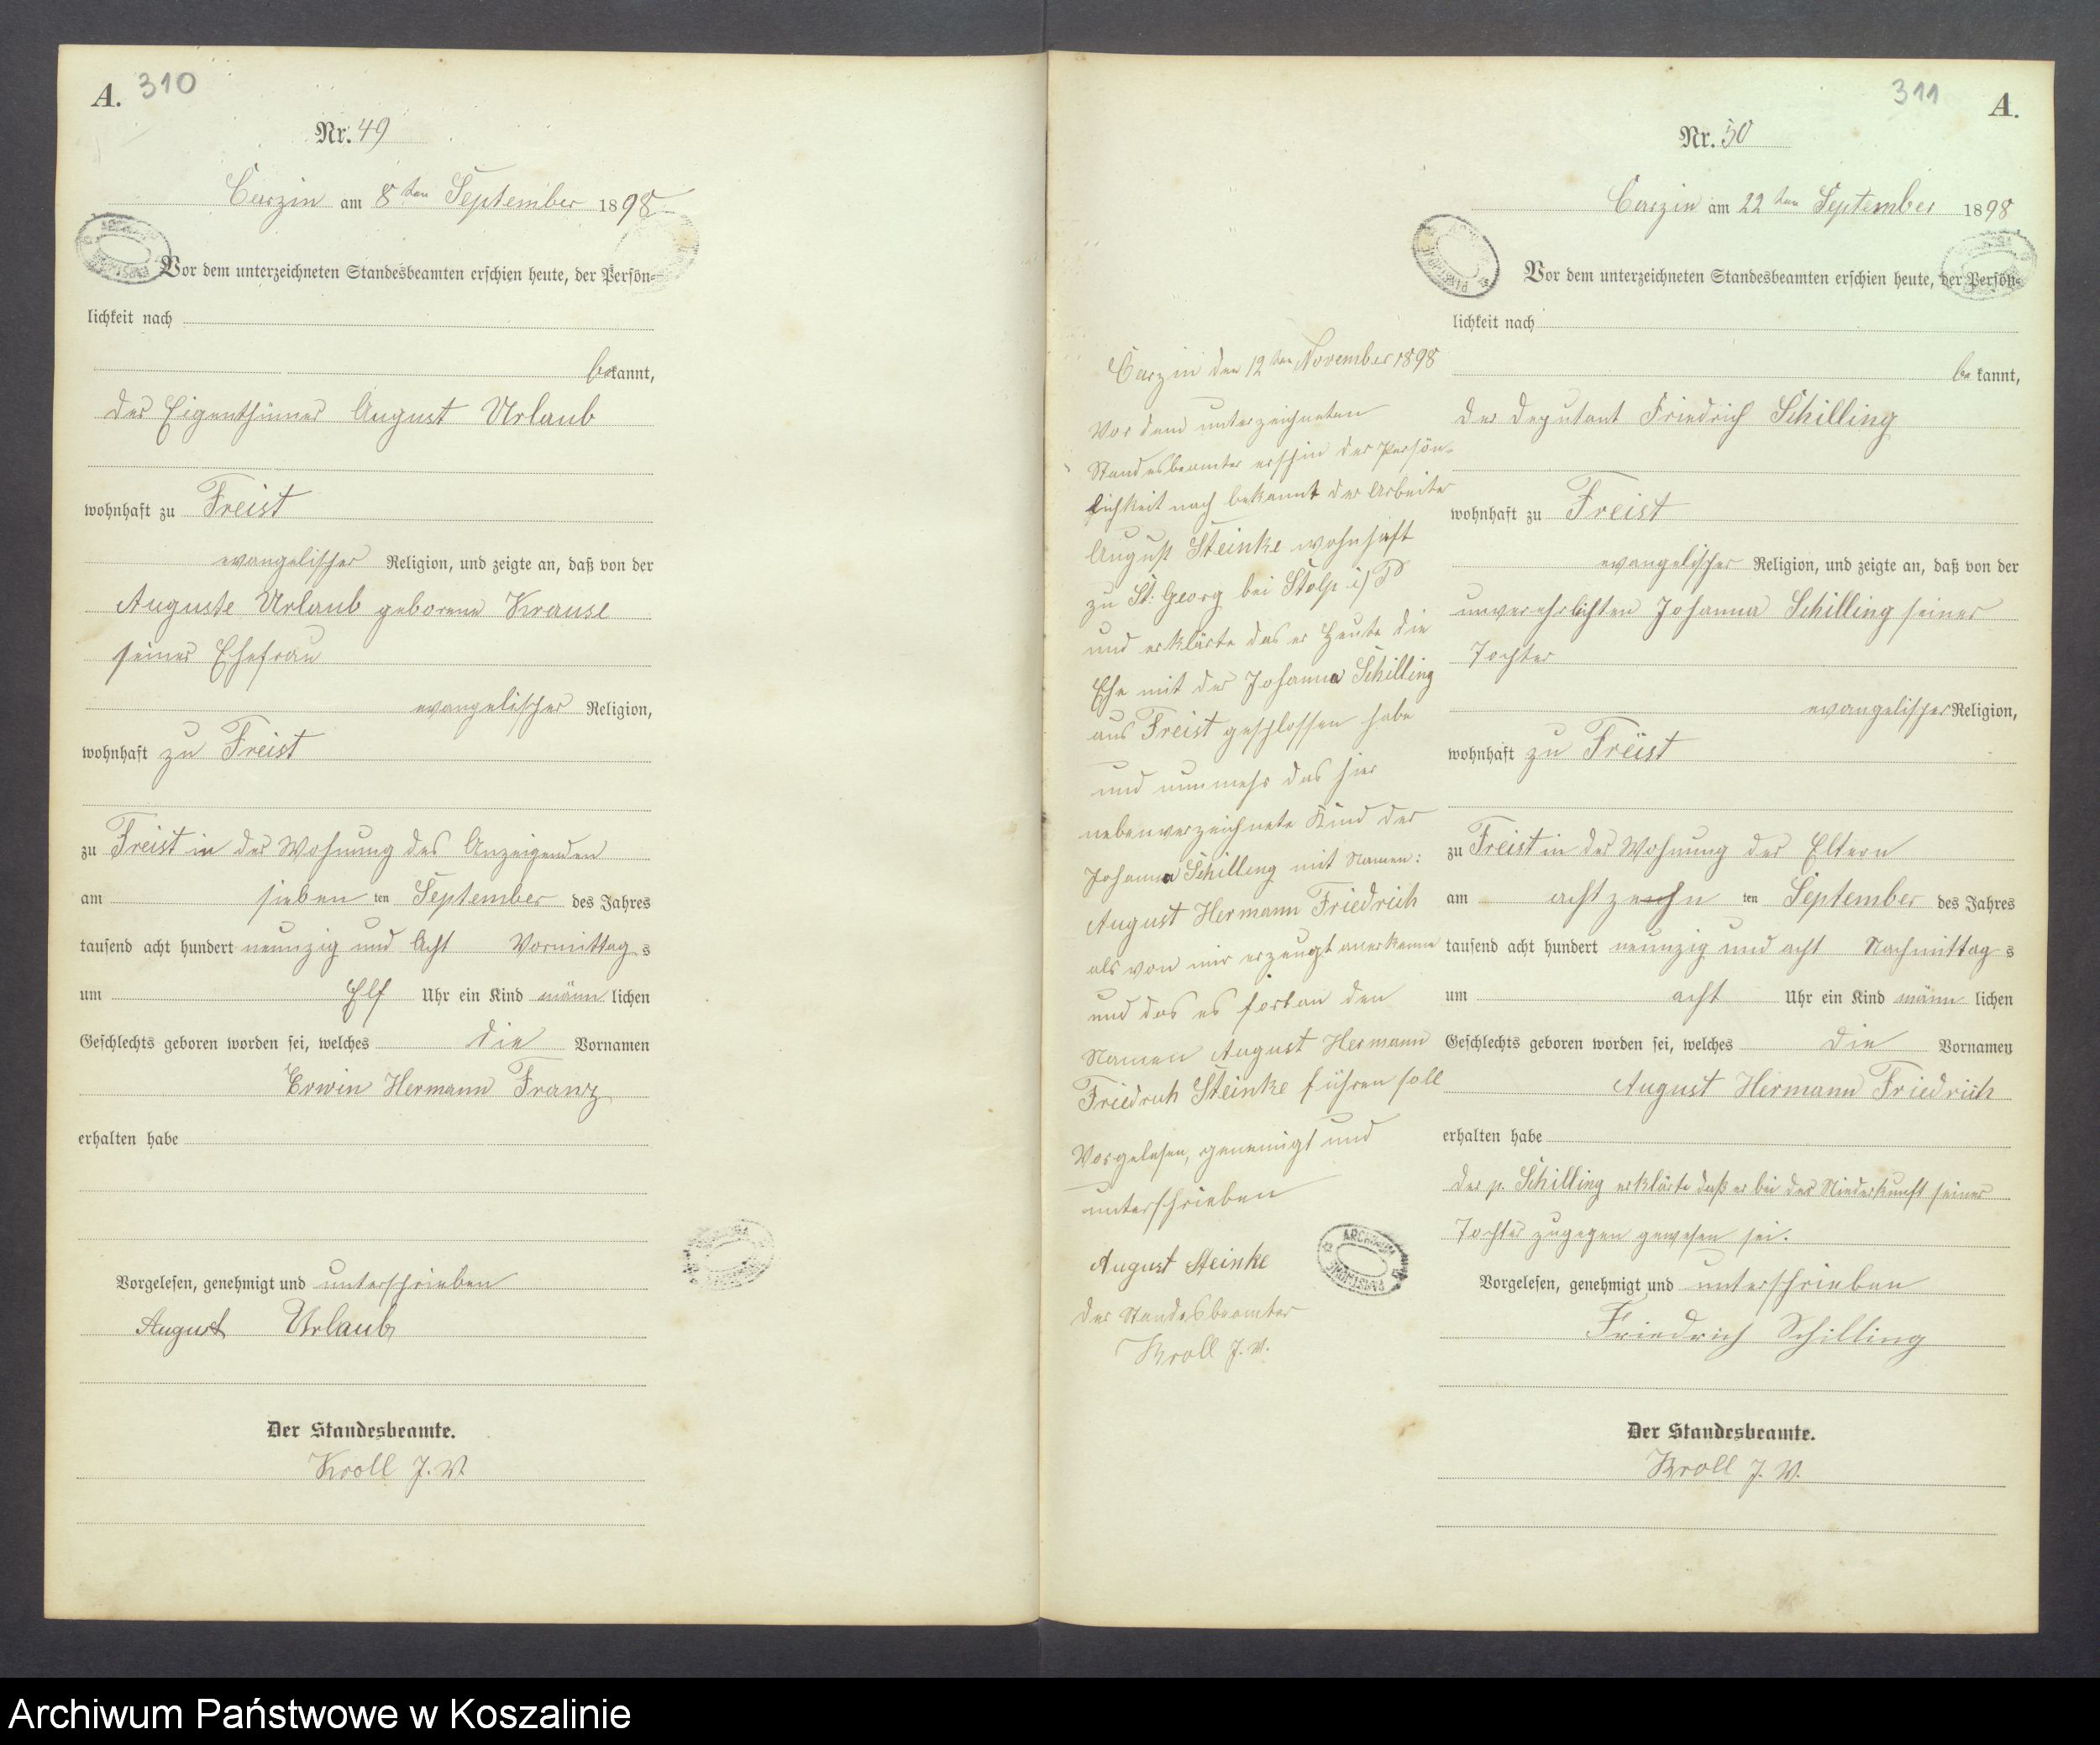 A. 310
Nr. 49
Carzin am 8ten September 1898
Vor dem unterzeichneten Standesbeamten erschien heute, der Persön=
lichkeit nach
bekannt,
der Eigenthümer August Urlaub
wohnhaft zu Freist
evangelischer Religion, und zeigte an, daß von der
Auguste Urlaub geborene Krause
seiner Ehefrau
evangelischer Religion,
wohnhaft zu Freist
zu Freist in der Wohnung des Anzeigenden
am sieben ten September des Jahres
tausend acht hundert neunzig und Acht Vormittag s
um Elf Uhr ein Kind männ lichen
Geschlechts geboren worden sei, welches die Vornamen
Erwin Hermann Franz
erhalten habe
Vorgelesen, genehmigt und unterschrieben
August Urlaub
Der Standesbeamte.
Kroll J. V.
Carzin den 12ten November 1898
Vor dem unterzeichneten
Standesbeamter erschin der Persön-
lichkeit nach bekannt der Arbeiter
August Steinke wohnhaft
zu St. Georg bei Stolp i/P
und erklärte das er Heute die
Ehe mit der Johanna Schilling
aus Freist geschlossen habe
und nunmehr das hier
nebenverzeichnete Kind der
Johanna Schilling mit Namen:
August Hermann Friedrich
als von mir erzeugt anerkenne
und das es fortan den
Namen August Hermann
Friedrich Steinke führen soll
Vorgelesen, genemigt und
unterschrieben
August Steinke
Der Standesbeamter
Kroll J. V.
311 A.
Nr. 50
Carzin am 22ten September 1898
Vor dem unterzeichneten Standesbeamten erschien heute, der Persön=
lichkeit nach
be kannt,
der Deputant Friedrich Schilling
wohnhaft zu Freist
evangelischer Religion, und zeigte an, daß von der
unverehelichten Johanna Schilling seiner
Tochter
evangelischer Religion,
wohnhaft zu Freist
zu Freist in der Wohnung der Eltern
am achtzehn ten September des Jahres
tausend acht hundert neunzig und acht Nachmittag s
um acht Uhr ein Kind männ lichen
Geschlechts geboren worden sei, welches die Vornamen
August Hermann Friedrich
erhalten habe
Der p. Schilling erklärte daß er bei der Niederkunft seiner
Tochter zugegen gewesen sei.
Vorgelesen, genehmigt und unterschrieben
Friedrich Schilling
Der Standesbeamte.
Kroll J. V.
Archiwum Państwowe w Koszalinie